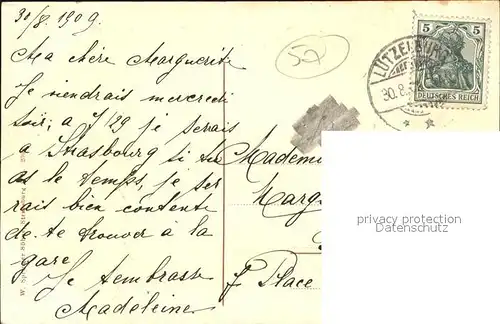 30/8. 1909.
Ma chère Marguerite
Je viendrais mercredi
soir; a 7/29 je serais
a Strasbourg si tu
as le temps, je se
rais bien contente
de te trouver a la
gare
Je t'embrasse
Madeleine
52
LÜTZELBURG
30.8.
5 5
DEUTSCHES REICH
Mademoi
Marg
Place
privacy protection
Datenschutz